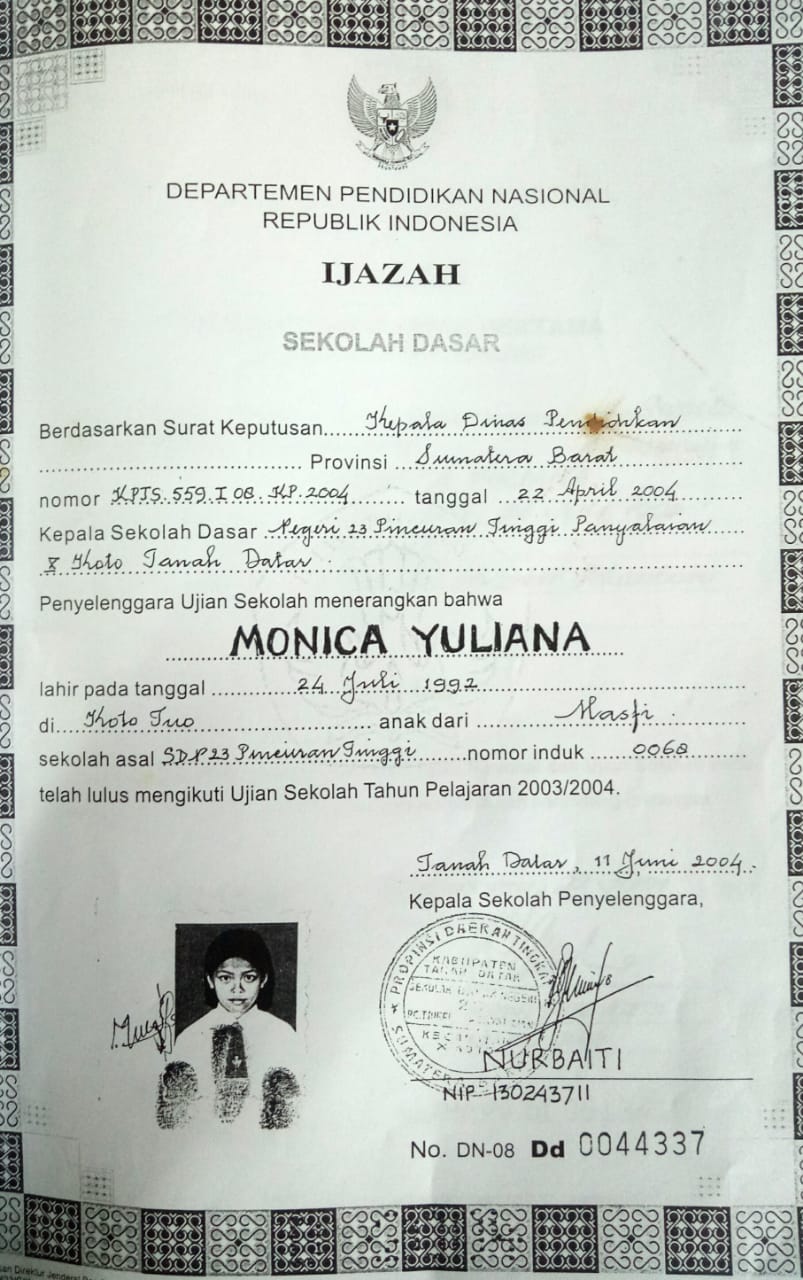 DEPARTEMEN PENDIDIKAN NASIONAL
REPUBLIK INDONESIA
IJAZAH
SEKOLAH DASAR
Berdasarkan Surat Keputusan Kepala Dinas Pendidikan
Provinsi Sumatera Barat
nomor KPTS.559.I 08.KP.2004 tanggal 22 April 2004
Kepala Sekolah Dasar Negeri 23 Pincuran Tinggi Panyalaian
X Koto Tanah Datar
Penyelenggara Ujian Sekolah menerangkan bahwa
MONICA YULIANA
lahir pada tanggal 24 Juli 1992
di Koto Tuo anak dari Masfi
sekolah asal SDN 23 Pincuran Tinggi nomor induk 0068
telah lulus mengikuti Ujian Sekolah Tahun Pelajaran 2003/2004.
Tanah Datar, 11 Juni 2004.
Kepala Sekolah Penyelenggara,
PROPINSI DAERAH TINGKAT
KABUPATEN
TANAH DATAR
SEKOLAH DASAR NEGERI
SUMATERA
NURBAITI
NIP 130243711
No. DN-08 Dd 0044337